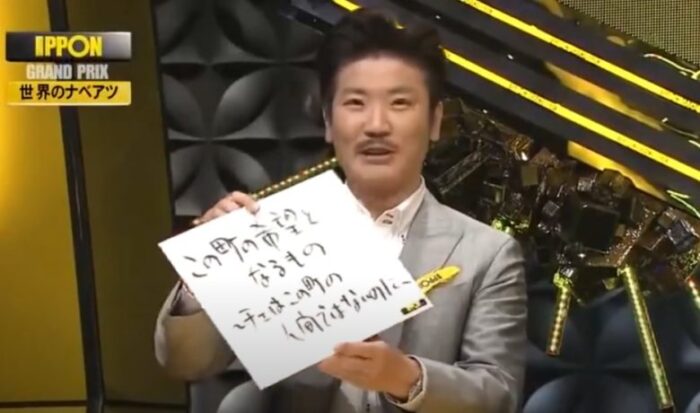 IPPON
GRAND PRIX
世界のナベアツ
この町の希望と
なるもの
それはこの町の
人間ではないのだ